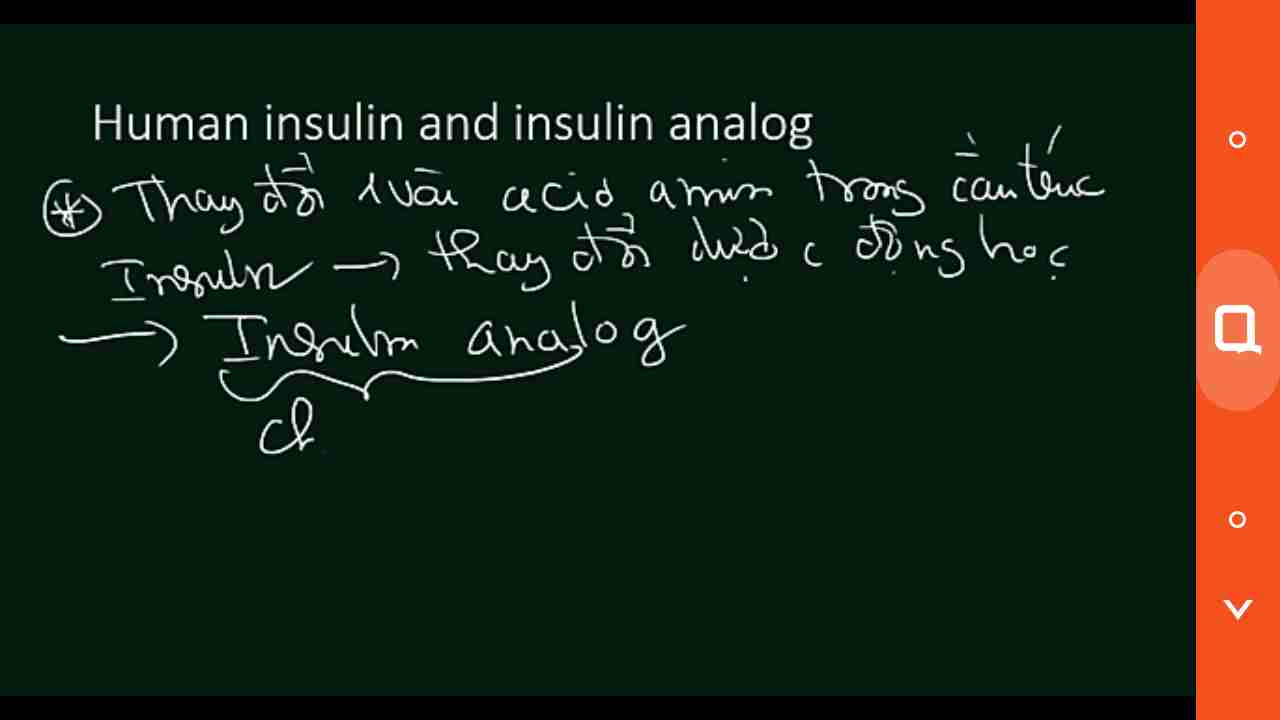 Human insulin and insulin analog
* Thay đổi 1 vài acid amin trong cấu trúc
Insulin → thay đổi dược động học
→ Insulin analog